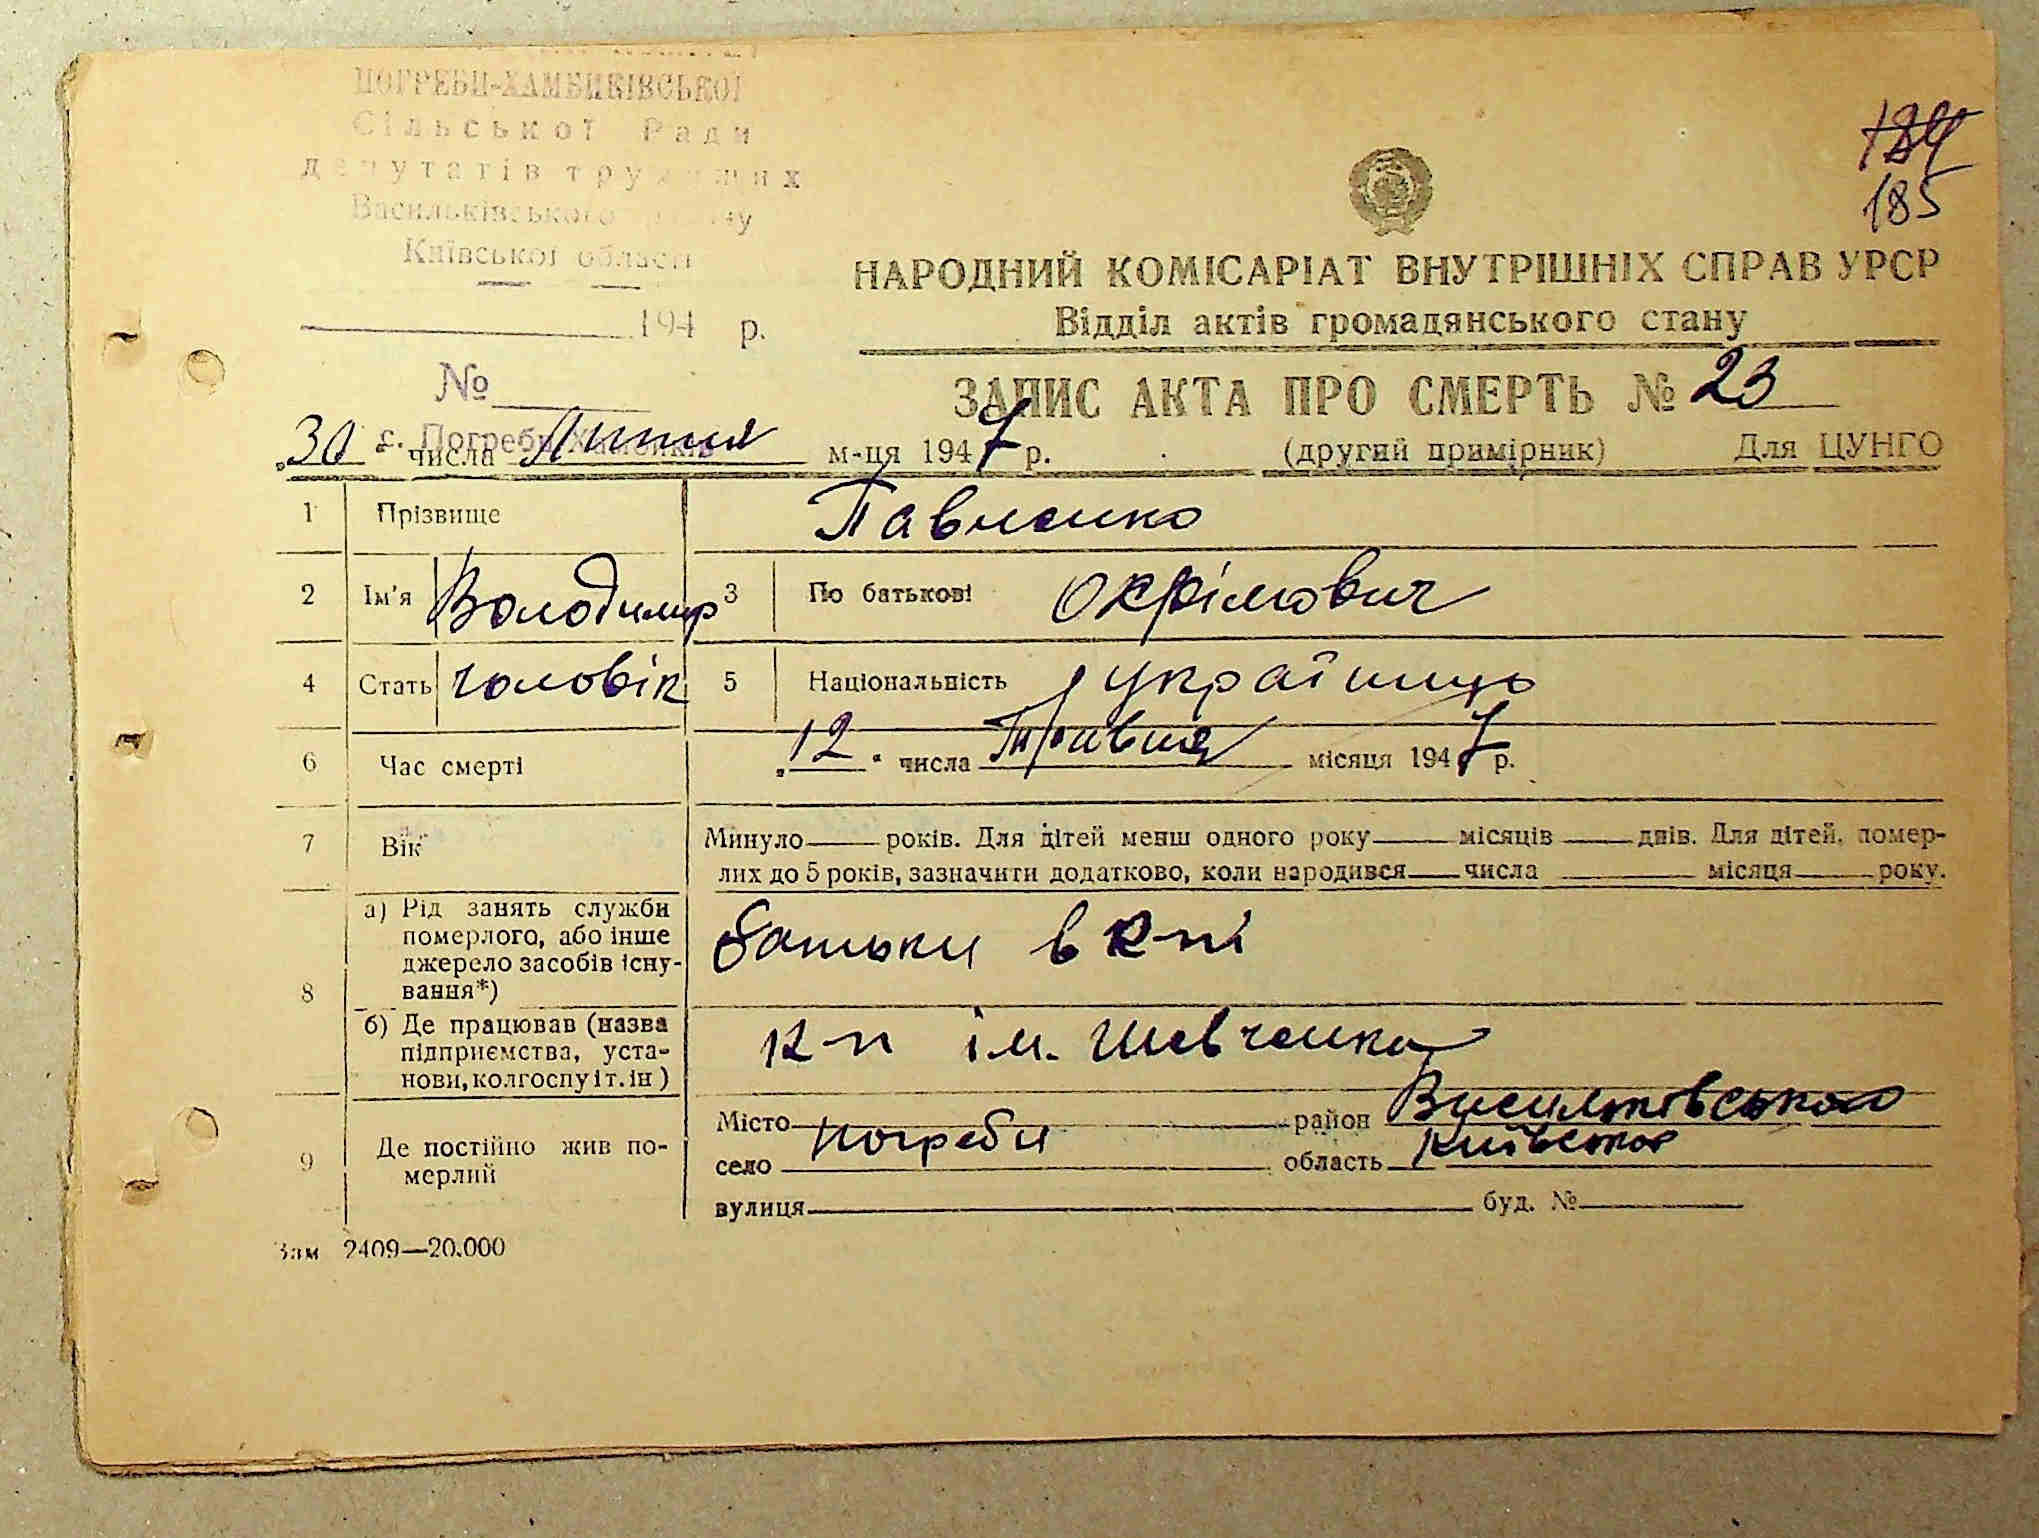 ПОГРЕБИ-ХАМБИКІВСЬКОЇ
Сільської Ради
депутатів трудящих
Васильківського району
Київської області
194 р.
№
с. Погреби
184
185
НАРОДНИЙ КОМІСАРІАТ ВНУТРІШНІХ СПРАВ УРСР
Відділ актів громадянського стану
ЗАПИС АКТА ПРО СМЕРТЬ № 23
„30 числа Липня м-ця 1947 р. (другий примірник) Для ЦУНГО
1 Прізвище Павленко
2 Ім'я Володимир 3 По батькові Окфімович
4 Стать чоловік 5 Національність українць
6 Час смерті „12" числа Травня місяця 1947 р.
7 Вік Минуло років. Для дітей менш одного року місяців днів. Для дітей, помер-
лих до 5 років, зазначити додатково, коли народився числа місяця року.
8 а) Рід занять служби
померлого, або інше
джерело засобів існу-
вання*)
батьки в к-пі
б) Де працював (назва
підприємства, уста-
нови, колгоспу і т. ін )
к-п ім. Шевченка
9 Де постійно жив по-
мерлий
Місто район Васильківського
село Погреби область Київська
вулиця буд. №
Зам 2409—20.000